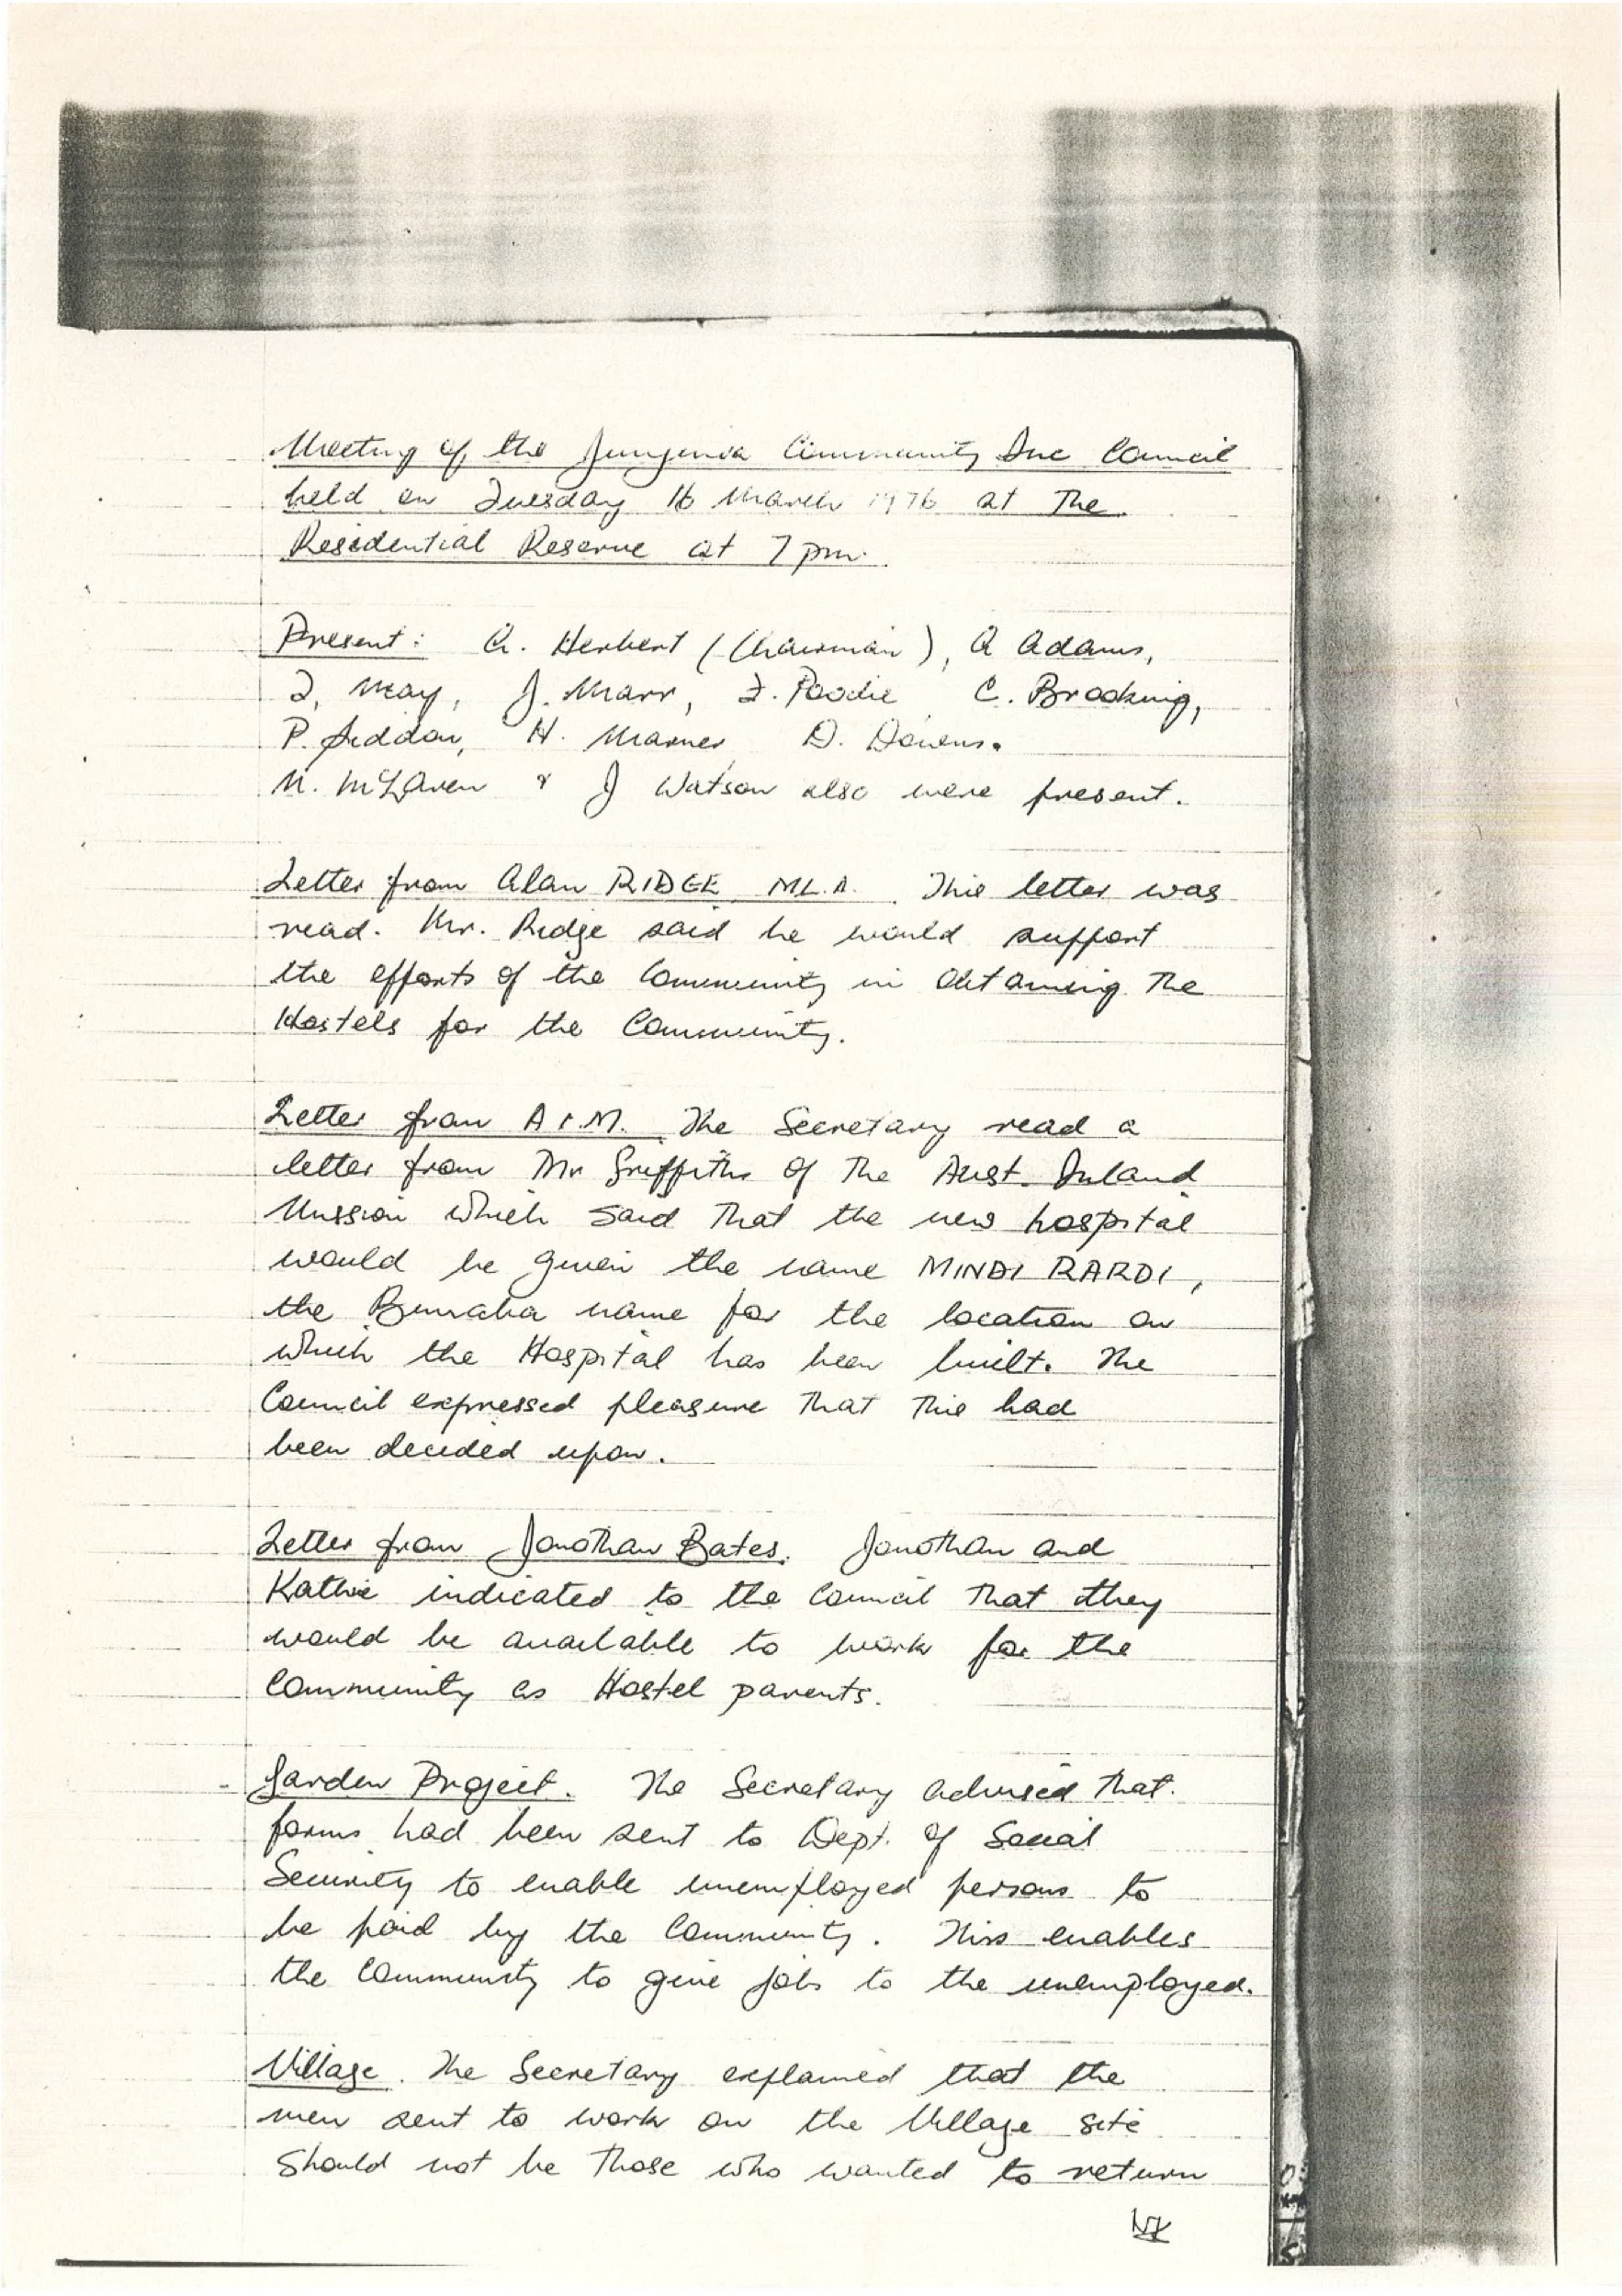 Meeting of the Junjuwa Community Inc Council
held on Tuesday 16 March 1976 at The
Residential Reserve at 7 pm.
Present: G. Herbert (Chairman), A Adams,
I. May, J. Marr, I. Poodie C. Brooking,
P. Seddon, H. Marner D. Downs.
N. McLaren & J Watson also were present.
Letter from Alan RIDGE M.L.A. This letter was
read. Mr. Ridge said he would support
the efforts of the Community in Obtaining The
Hostels for the Community.
Letter from A.I.M. The Secretary read a
letter from Mr Griffiths of The Aust. Inland
Mission which said That the new hospital
would be given the name MINDI RARDI,
the Bunaba name for the location on
which the Hospital has been built. The
Council expressed pleasure That This had
been decided upon.
Letter from Jonothan Bates. Jonothan and
Kathie indicated to the Council That they
would be available to work for the
Community as Hostel parents.
Garden Project. The Secretary advised That
forms had been sent to Dept. of Social
Security to enable unemployed persons to
be paid by the Community. This enables
the Community to give jobs to the unemployed.
Village. The Secretary explained that the
men sent to work on the Village site
Should not be Those who wanted to return